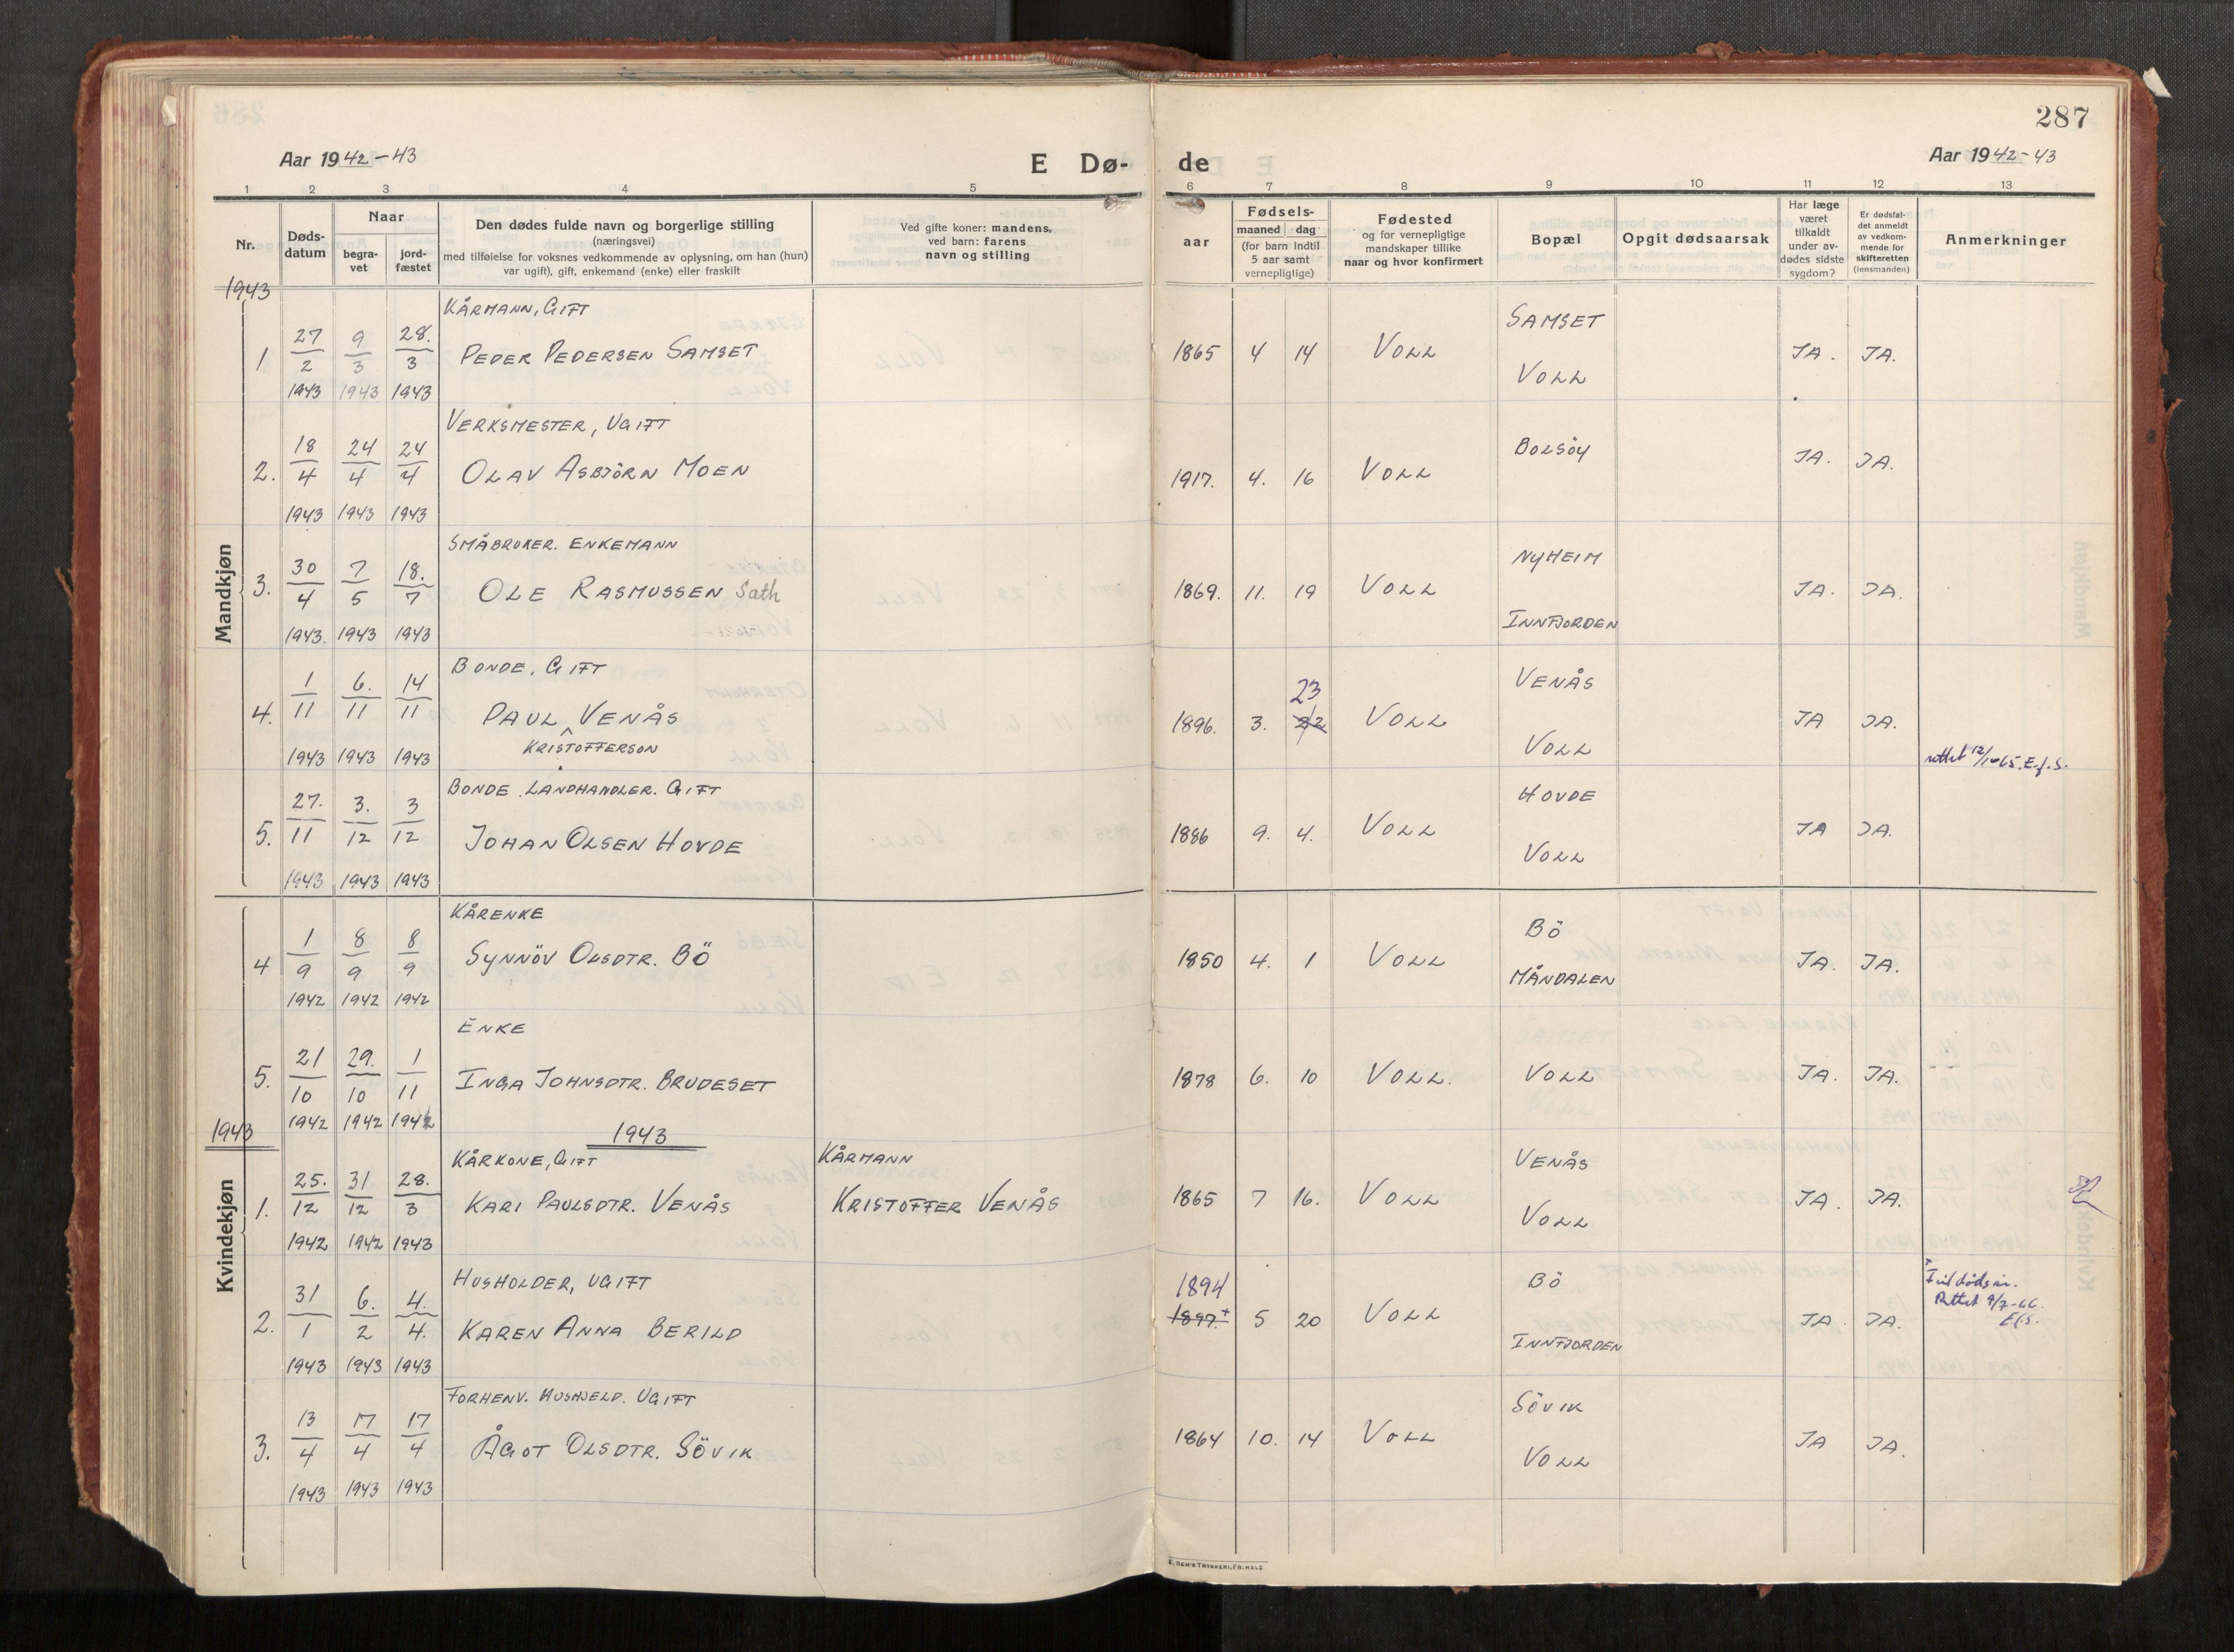 287
Aar 1942-43
E Dø-
de
Aar 1942-43
1 2 3 4 5 6 7 8 9 10 11 12 13
Nr.
Døds-
datum
Naar
begra-
vet
jord-
fæstet
Den dødes fulde navn og borgerlige stilling
(næringsvei)
med tilføielse for voksnes vedkommende av oplysning, om han (hun)
var ugift), gift, enkemand (enke) eller fraskilt
Ved gifte koner: mandens,
ved barn: farens
navn og stilling
Fødsels-
aar
maaned dag
(for barn indtil
5 aar samt
vernepligtige)
Fødested
og for vernepligtige
mandskaper tillike
naar og hvor konfirmert
Bopæl
Opgit dødsaarsak
Har læge
været
tilkaldt
under av-
dødes sidste
sygdom?
Er dødsfal-
det anmeldt
av vedkom-
mende for
skifteretten
(lensmanden)
Anmerkninger
Mandkjøn
1943
KÅRMANN, GIFT
1 27/2 1943 9/3 1943 28./3 1943 PEDER PEDERSEN SAMSET 1865 4 14 VOLL SAMSET VOLL JA. JA.
VERKSMESTER, UGIFT
2. 18/4 1943 24/4 1943 24/4 1943 OLAV ASBJÖRN MOEN 1917. 4. 16 VOLL BOLSÖY JA. JA.
SMÅBRUKER. ENKEMANN
3. 30/4 1943. 7/5 1943 18./7 1943 OLE RASMUSSEN Sath 1869. 11. 19 VOLL NYHEIM INNFJORDEN JA. JA.
BONDE, GIFT
4. 1/11 1943 6./11 1943 14/11 1943 PAUL VENÅS 1896. 3. 22 23 VOLL VENÅS VOLL JA JA.
KRISTOFFERSON
rettet 12/1-65. E.f.S.
BONDE. LANDHANDLER. GIFT
5. 27./11 1943 3./12 1943 3/12 1943 JOHAN OLSEN HOVDE 1886 9. 4. VOLL HOVDE VOLL JA JA.
Kvindekjøn
KÅRENKE
4 1/9 1942 8/9 1942 8/9 1942 SYNNÖV OLSDTR. BÖ 1850 4. 1 VOLL BÖ MÅNDALEN JA. JA.
ENKE
5. 21/10 1942 29./10 1942 1/11 1942 INGA JOHNSDTR. BRUDESET 1878 6. 10 VOLL. VOLL JA. JA.
1943
1943
KÅRKONE, GIFT KÅRMANN
1. 25./12 1942 31/12 1942 28./3 1943 KARI PAULSDTR. VENÅS KRISTOFFER VENÅS 1865 7 16. VOLL VENÅS VOLL JA. JA.
HUSHOLDER, UGIFT
2. 31/1 1943 6./2 1943 4./4. 1943 KAREN ANNA BERILD 1897.+ 1894 5 20 VOLL BÖ INNFJORDEN JA. JA.
Rettet 9/7-66.
E.f.S.
FORHENV. HUSHJELP. UGIFT
3. 13/4 1943 17/4 1943 17/4 1943 ÅGOT OLSDTR. SÖVIK 1864 10. 14 VOLL SÖVIK VOLL JA JA.
E. SEM'S TRYKKERI, FR.HALD